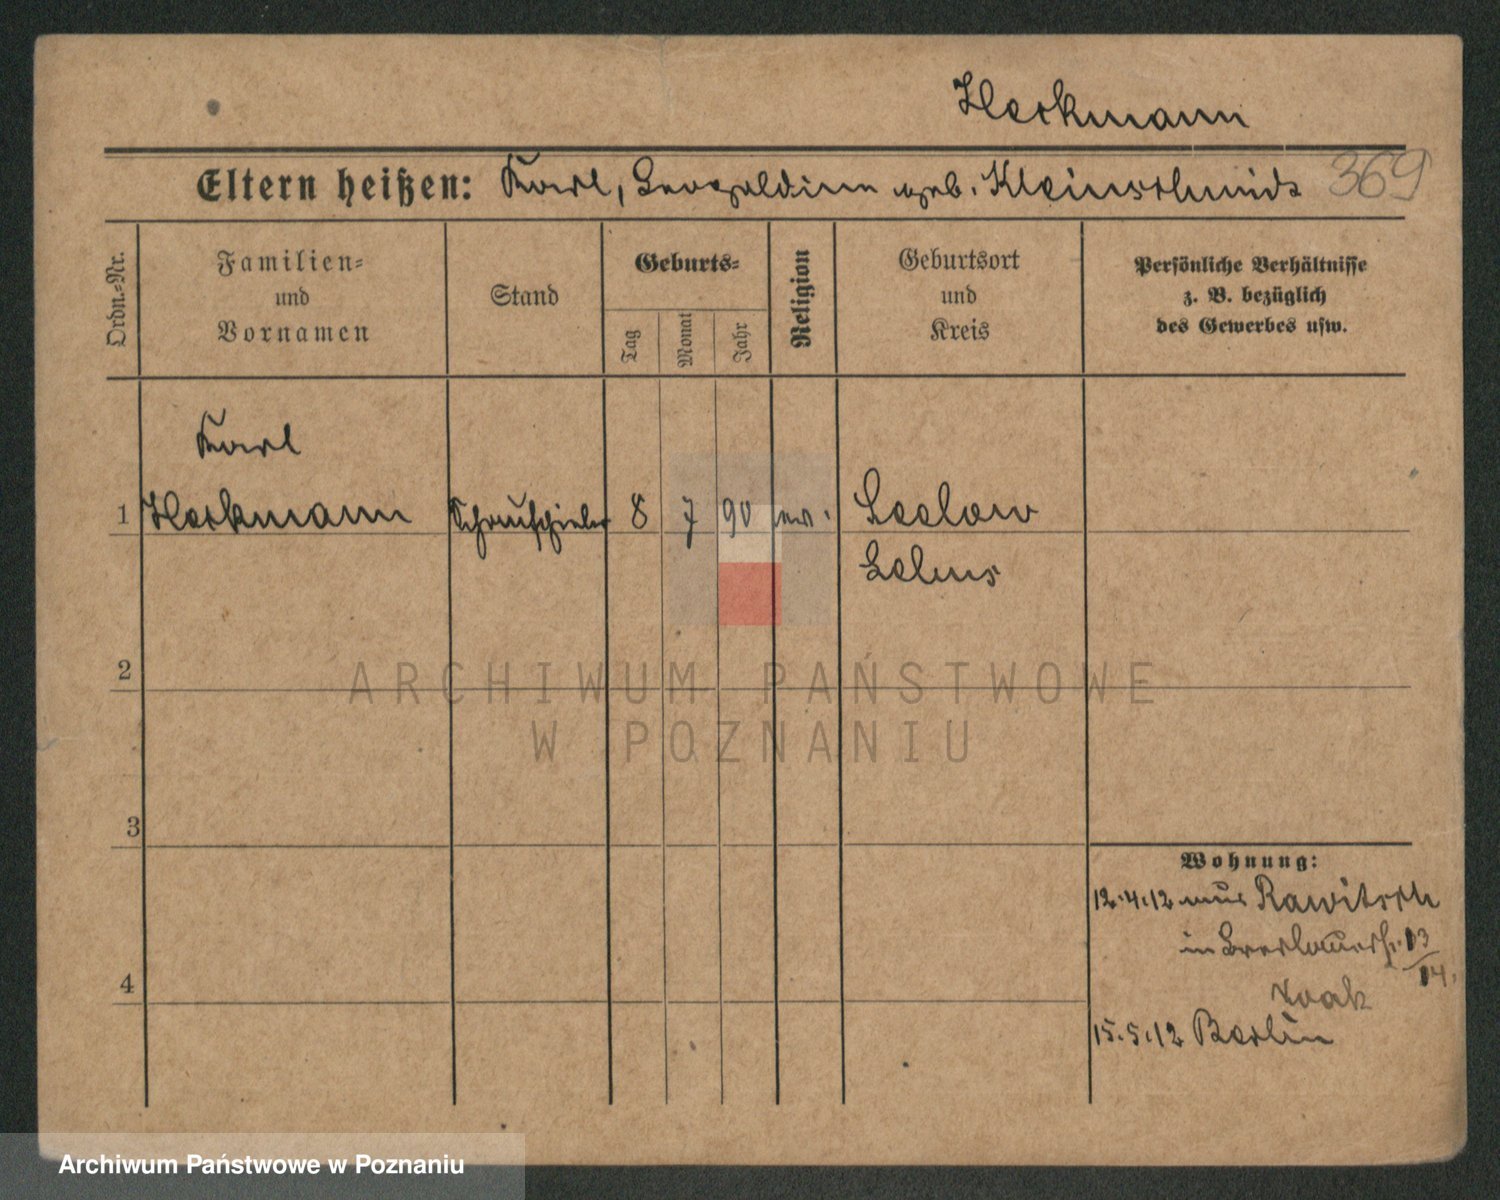 Heckmann
Eltern heißen: Karl, Leopoldine geb. Kleinschmidt 369
Ordn.-Nr.
Familien-
und
Vornamen
Stand
Geburts-
Tag
Monat
Jahr
Religion
Geburtsort
und
Kreis
Persönliche Verhältnisse
z. B. bezüglich
des Gewerbes usw.
Karl
1 Heckmann Schriftgießer 8 7 90 ev. Seelow
Lebus
2
ARCHIWUM PAŃSTWOWE
W POZNANIU
3
Wohnung:
12.4.12 aus Rawitsch
in Breslauerstr. 13/14.
4
15.5.12 Berlin
Archiwum Państwowe w Poznaniu